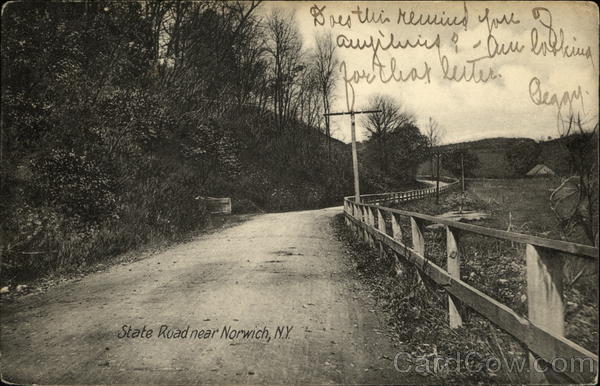 Does this remind you of
anything? - Am looking
for that letter.
Peggy.
State Road near Norwich, N.Y.
CardCow.com